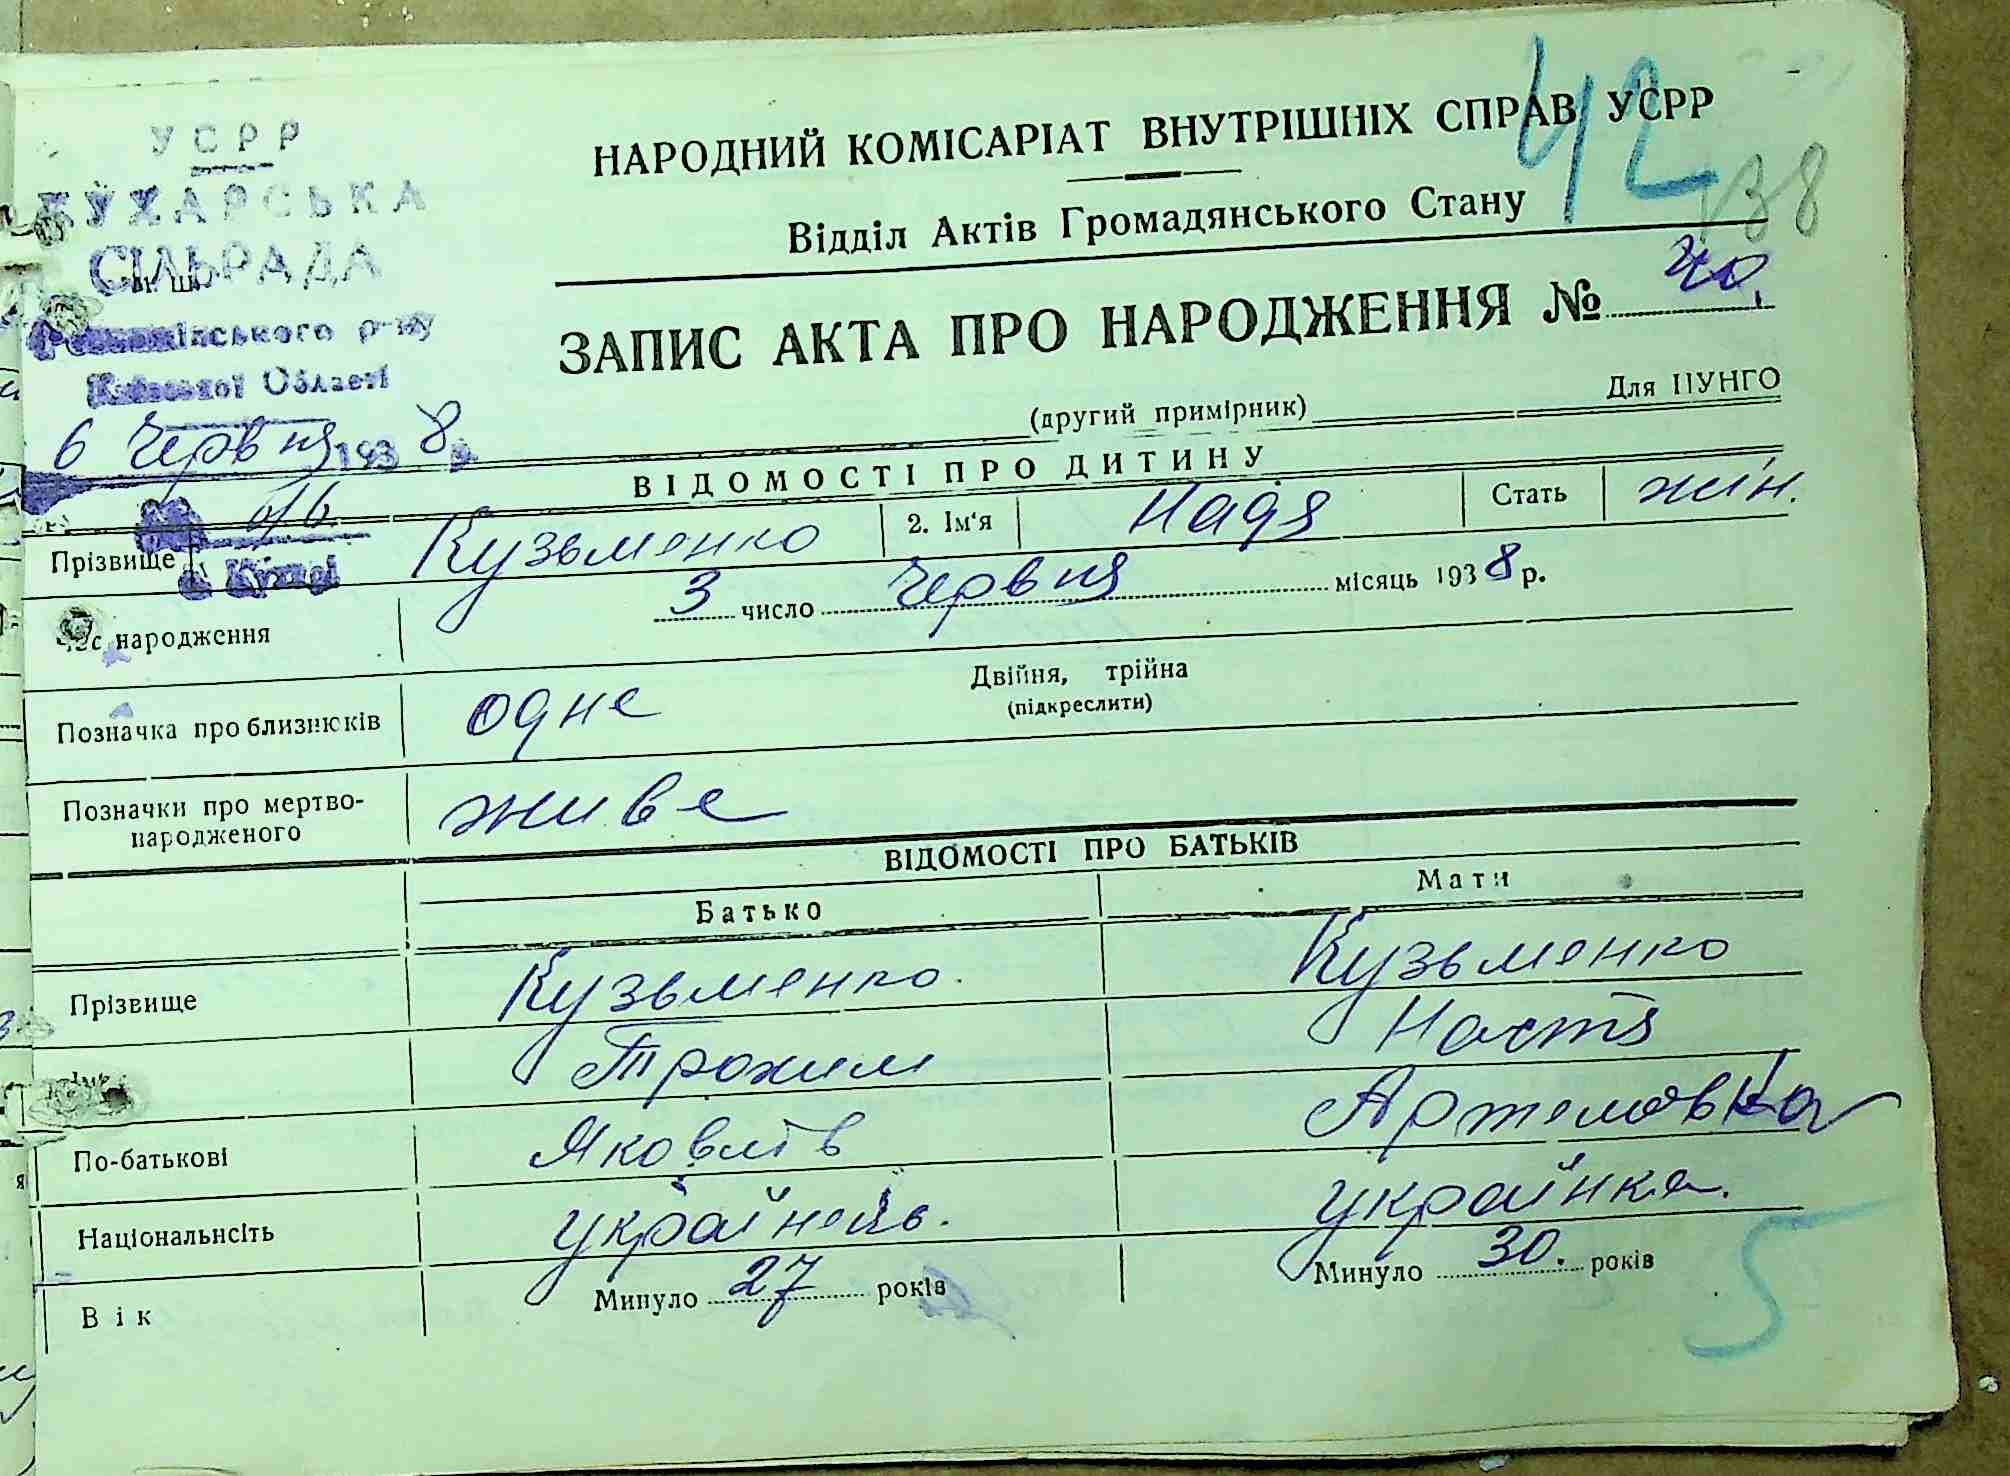 УСРР
КУХАРСЬКА
СІЛЬРАДА
р-ну
Київської Області
6 Червня 1938 р.
с. Кухарі
42
138
НАРОДНИЙ КОМІСАРІАТ ВНУТРІШНІХ СПРАВ УСРР
Відділ Актів Громадянського Стану
ЗАПИС АКТА ПРО НАРОДЖЕННЯ № 40.
(другий примірник)
Для ЦУНГО
ВІДОМОСТІ ПРО ДИТИНУ
Прізвище Кузьменко 2. Ім'я Надя Стать жін.
Час народження 3 число Червня місяць 1938 р.
Позначка про близнюків одне Двійня, трійна
(підкреслити)
Позначки про мертво-
народженого живе
ВІДОМОСТІ ПРО БАТЬКІВ
Батько Мати
Прізвище Кузьменко. Кузьменко
Трохим Настя
По-батькові Яковлів Артемовна
Національнсіть українець. українка.
Вік Минуло 27 років Минуло 30. років
5